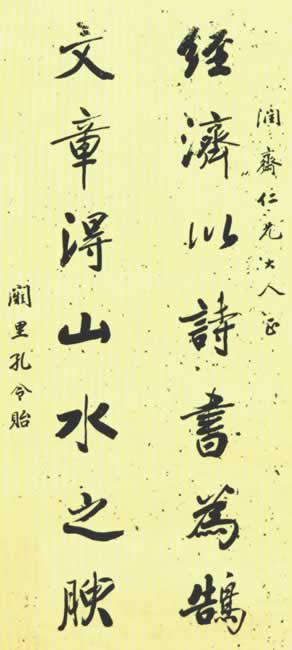 潤齋仁兄大人正
經濟以詩書為鵠
文章得山水之腴
闕里孔令貽